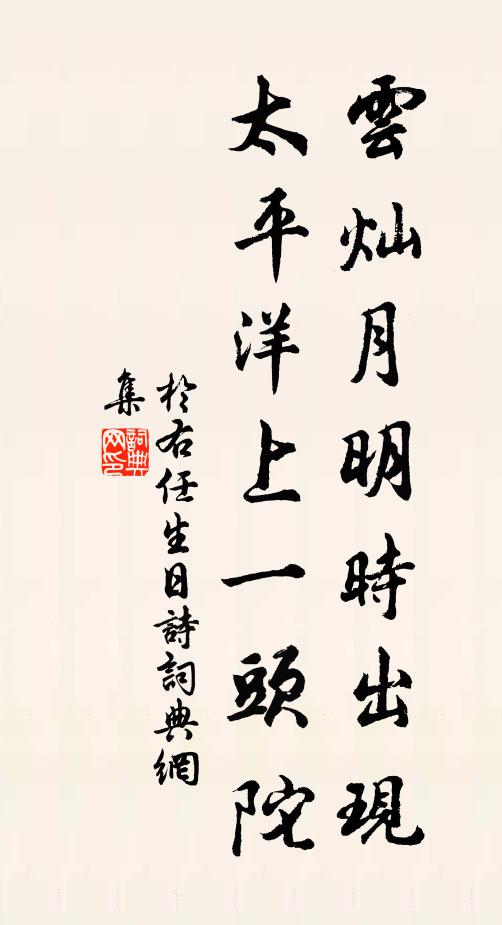 雲灿月明時出現
太平洋上一頭陀
於右任生日詩詞典網
集
詞典
网印